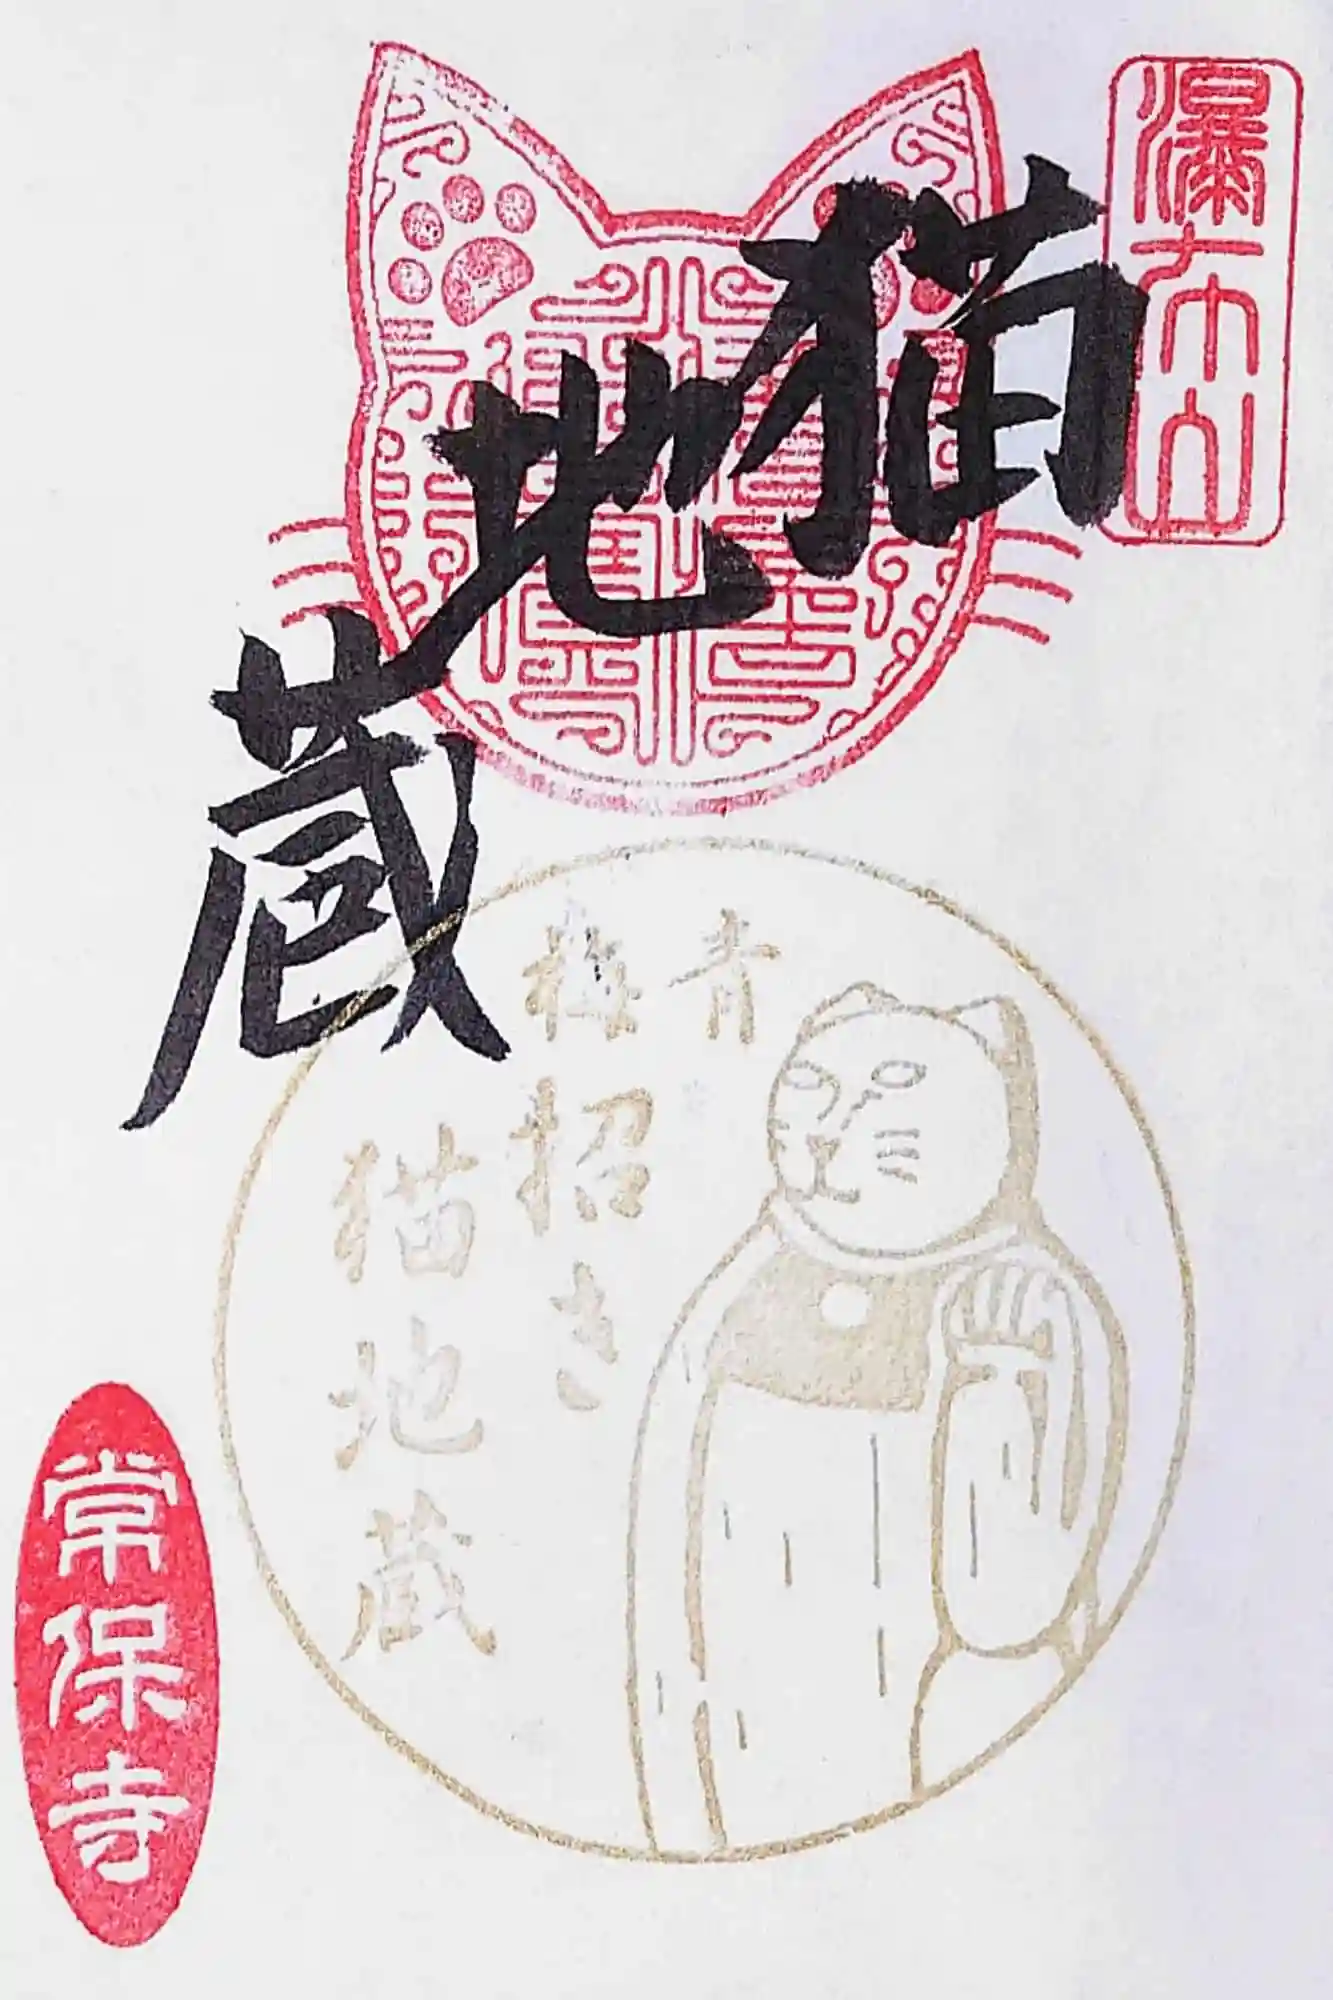 瀑布山
猫地蔵
青梅招き
猫地蔵
常保寺